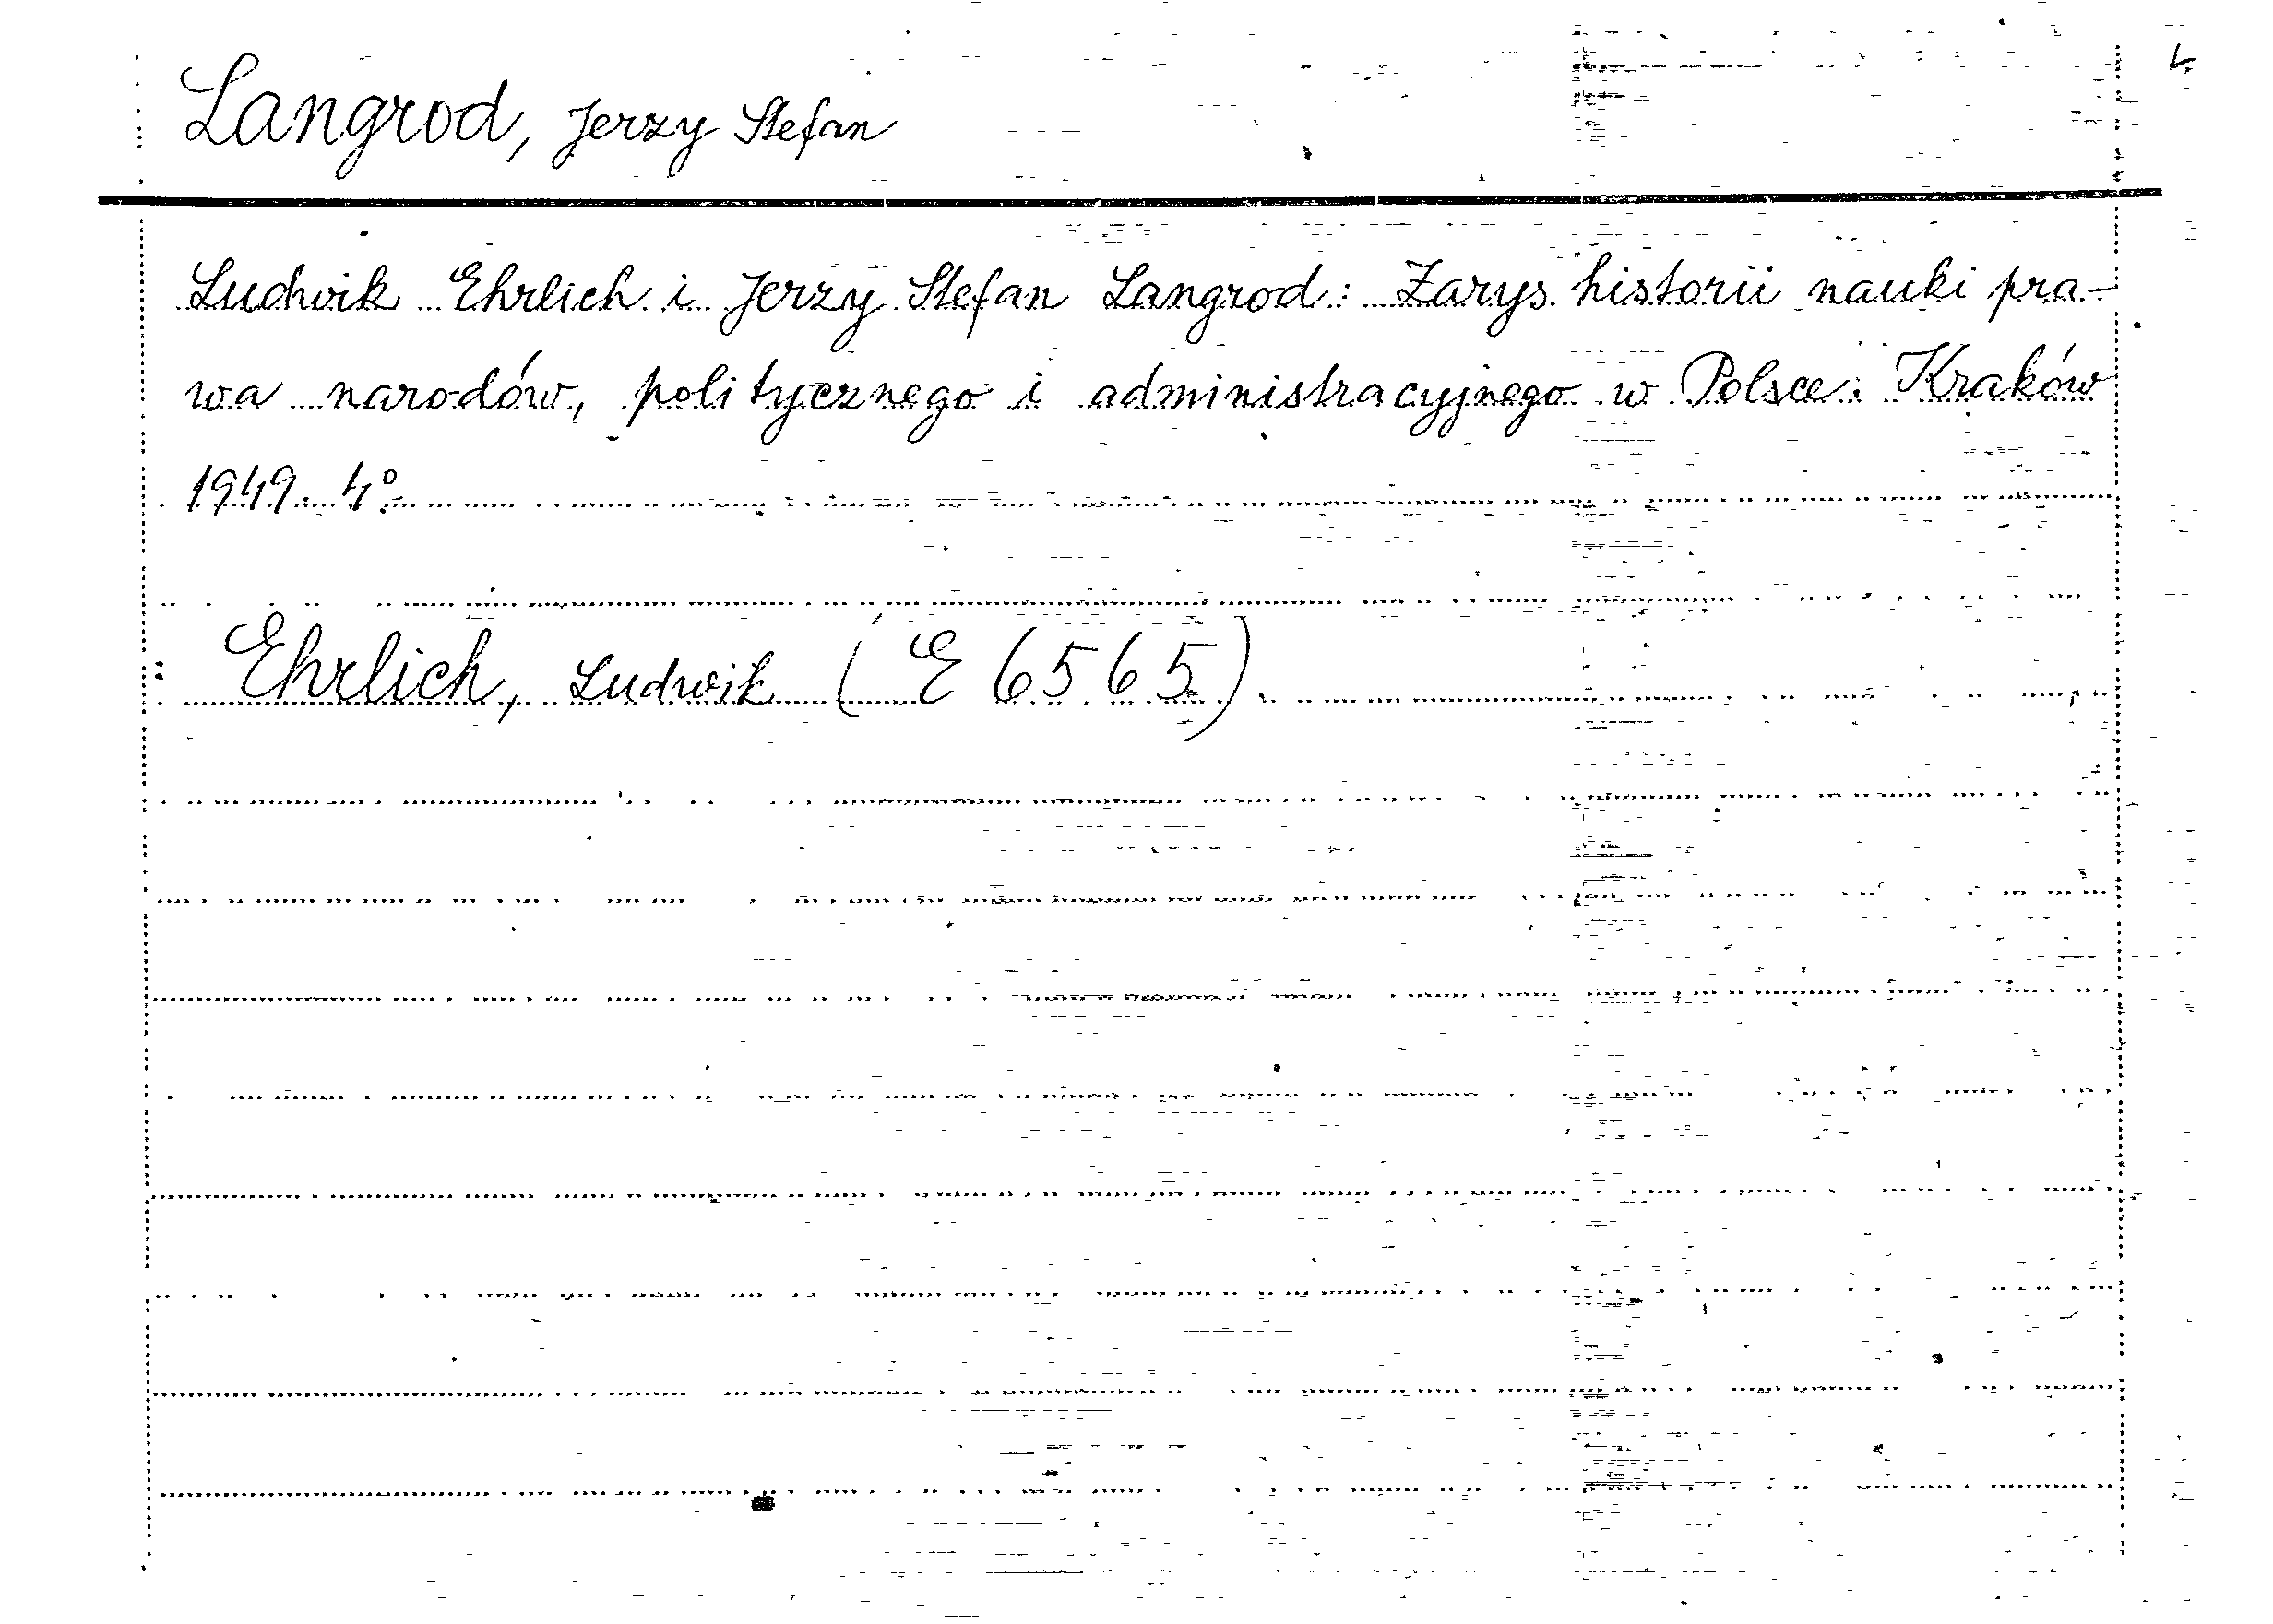 Langrod, Jerzy Stefan
Ludwik Ehrlich i Jerzy Stefan Langrod: Zarys historii nauki pra-
wa narodów, politycznego i administracyjnego w Polsce. Kraków
1949. 4°.
: Ehrlich, Ludwik (E 6565).